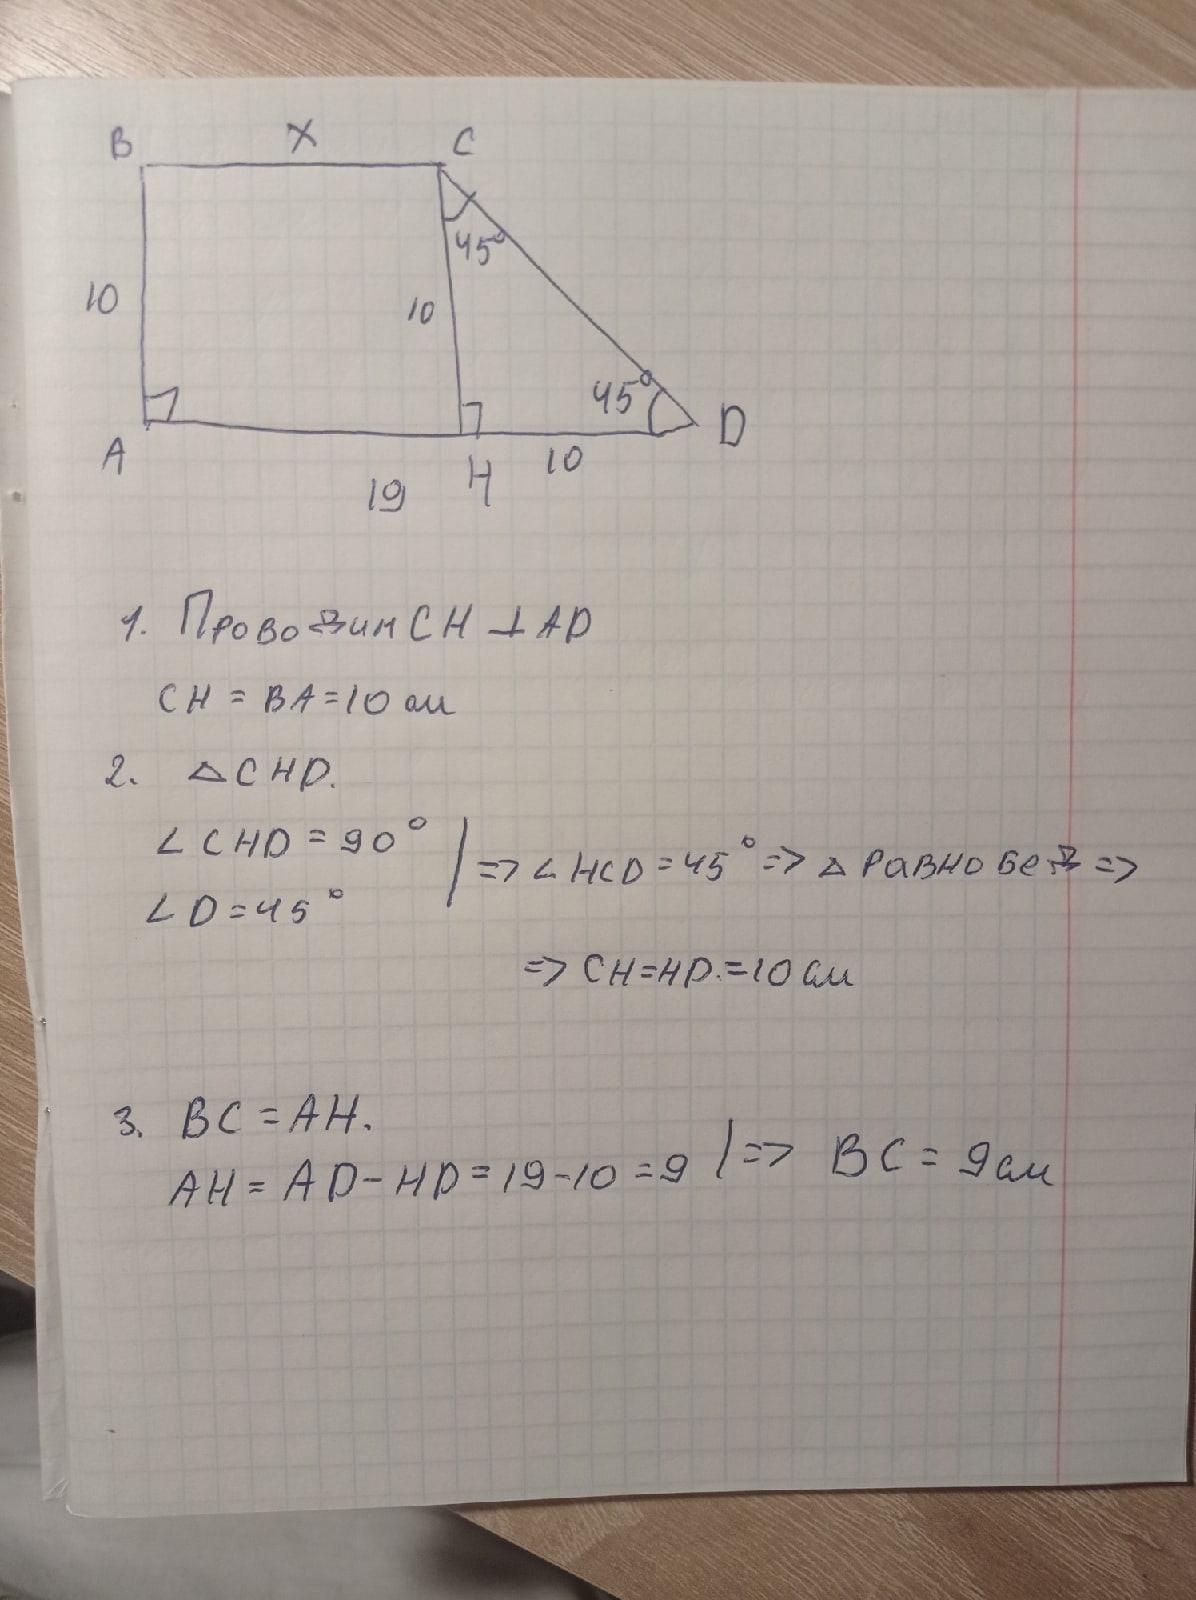 B X C
45°
10 10
45° D
A H 10
19
1. Проводим CH ⊥ AD
CH = BA = 10 см
2. △ CHD.
∠ CHD = 90°
∠ D = 45° | => ∠ HCD = 45° => △ равнобед =>
=> CH = HD. = 10 см
3. BC = AH.
AH = AD - HD = 19 - 10 = 9 | => BC = 9 см